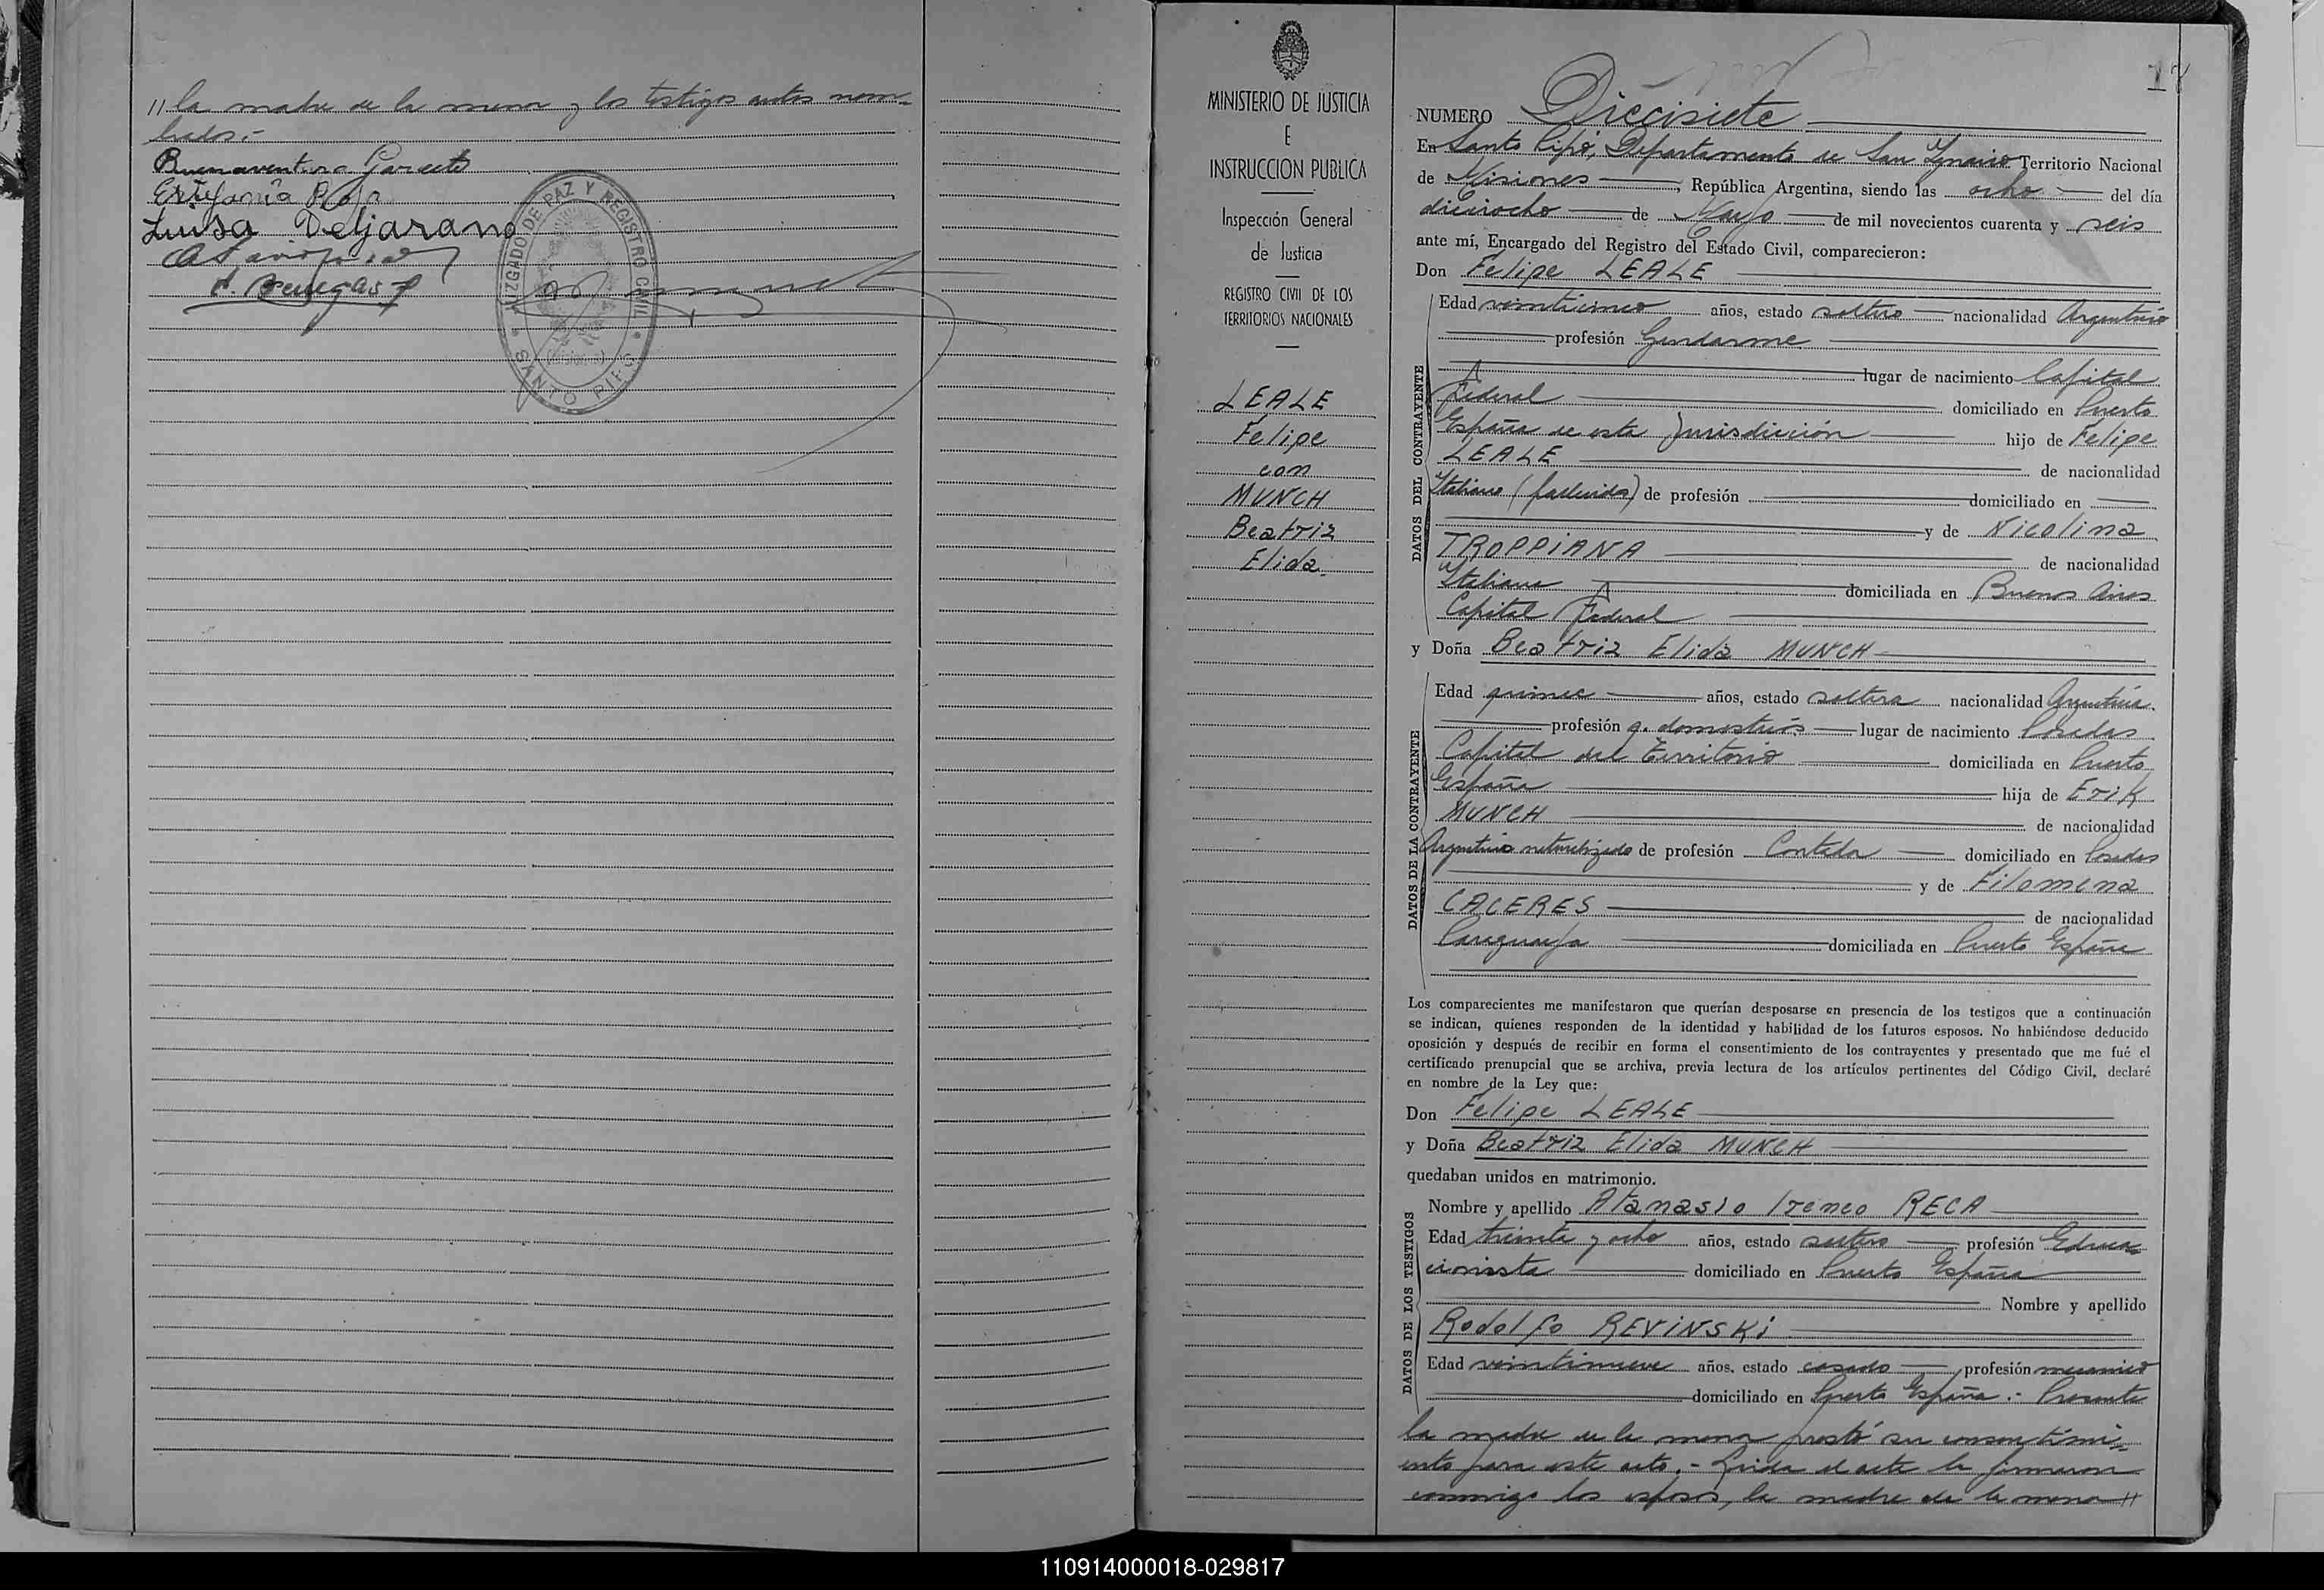 // la madre de la menor y los testigos antes nom-
brados.-
Buenaventura
Estefanía Roja
Luisa Dejarano
JUZGADO DE PAZ Y REGISTRO CIVIL
SANTO PIPO
(Misiones)
MINISTERIO DE JUSTICIA
E
INSTRUCCION PUBLICA
Inspección General
de Justicia
REGISTRO CIVIL DE LOS
TERRITORIOS NACIONALES
LEALE
Felipe
con
MUNCH
Beatriz
Elida.
17
NUMERO Diecisiete
En Santo Pipó, Departamento de San Ignacio Territorio Nacional
de Misiones, República Argentina, siendo las ocho del día
dieciocho de Mayo de mil novecientos cuarenta y seis
ante mí, Encargado del Registro del Estado Civil, comparecieron:
Don Felipe LEALE
DATOS DEL CONTRAYENTE
Edad veinticinco años, estado soltero nacionalidad Argentino
profesión Gendarme
lugar de nacimiento Capital
Federal domiciliado en Puerto
España de esta Jurisdicción hijo de Felipe
LEALE de nacionalidad
Italiano (fallecido) de profesión domiciliado en
y de Nicolina
TROPPIANA de nacionalidad
Italiana domiciliada en Buenos Aires
Capital Federal
y Doña Beatriz Elida MUNCH
DATOS DE LA CONTRAYENTE
Edad quince años, estado soltera nacionalidad Argentina.
profesión q. domesticos lugar de nacimiento Posadas
Capital del Territorio domiciliada en Puerto
España hija de Erik
MUNCH de nacionalidad
Argentino naturalizado de profesión Contador domiciliado en Posadas
y de Filomena
CACERES de nacionalidad
Paraguaya domiciliada en Puerto España
Los comparecientes me manifestaron que querían desposarse en presencia de los testigos que a continuación
se indican, quienes responden de la identidad y habilidad de los futuros esposos. No habiéndose deducido
oposición y después de recibir en forma el consentimiento de los contrayentes y presentado que me fué el
certificado prenupcial que se archiva, previa lectura de los artículos pertinentes del Código Civil, declaré
en nombre de la Ley que:
Don Felipe LEALE
y Doña Beatriz Elida MUNCH
quedaban unidos en matrimonio.
DATOS DE LOS TESTIGOS
Nombre y apellido Atanasio Ireneo RECA
Edad treinta y ocho años, estado soltero profesión Educa-
cionista domiciliado en Puerto España
Nombre y apellido
Rodolfo REVINSKI
Edad veintinueve años, estado casado profesión mecanico
domiciliado en Puerto España.- Presente
la madre de la menor prestó su consentimi-
ento para este acto.- Leida el acta la firmaron
conmigo los esposos, la madre de la menor //
110914000018-029817